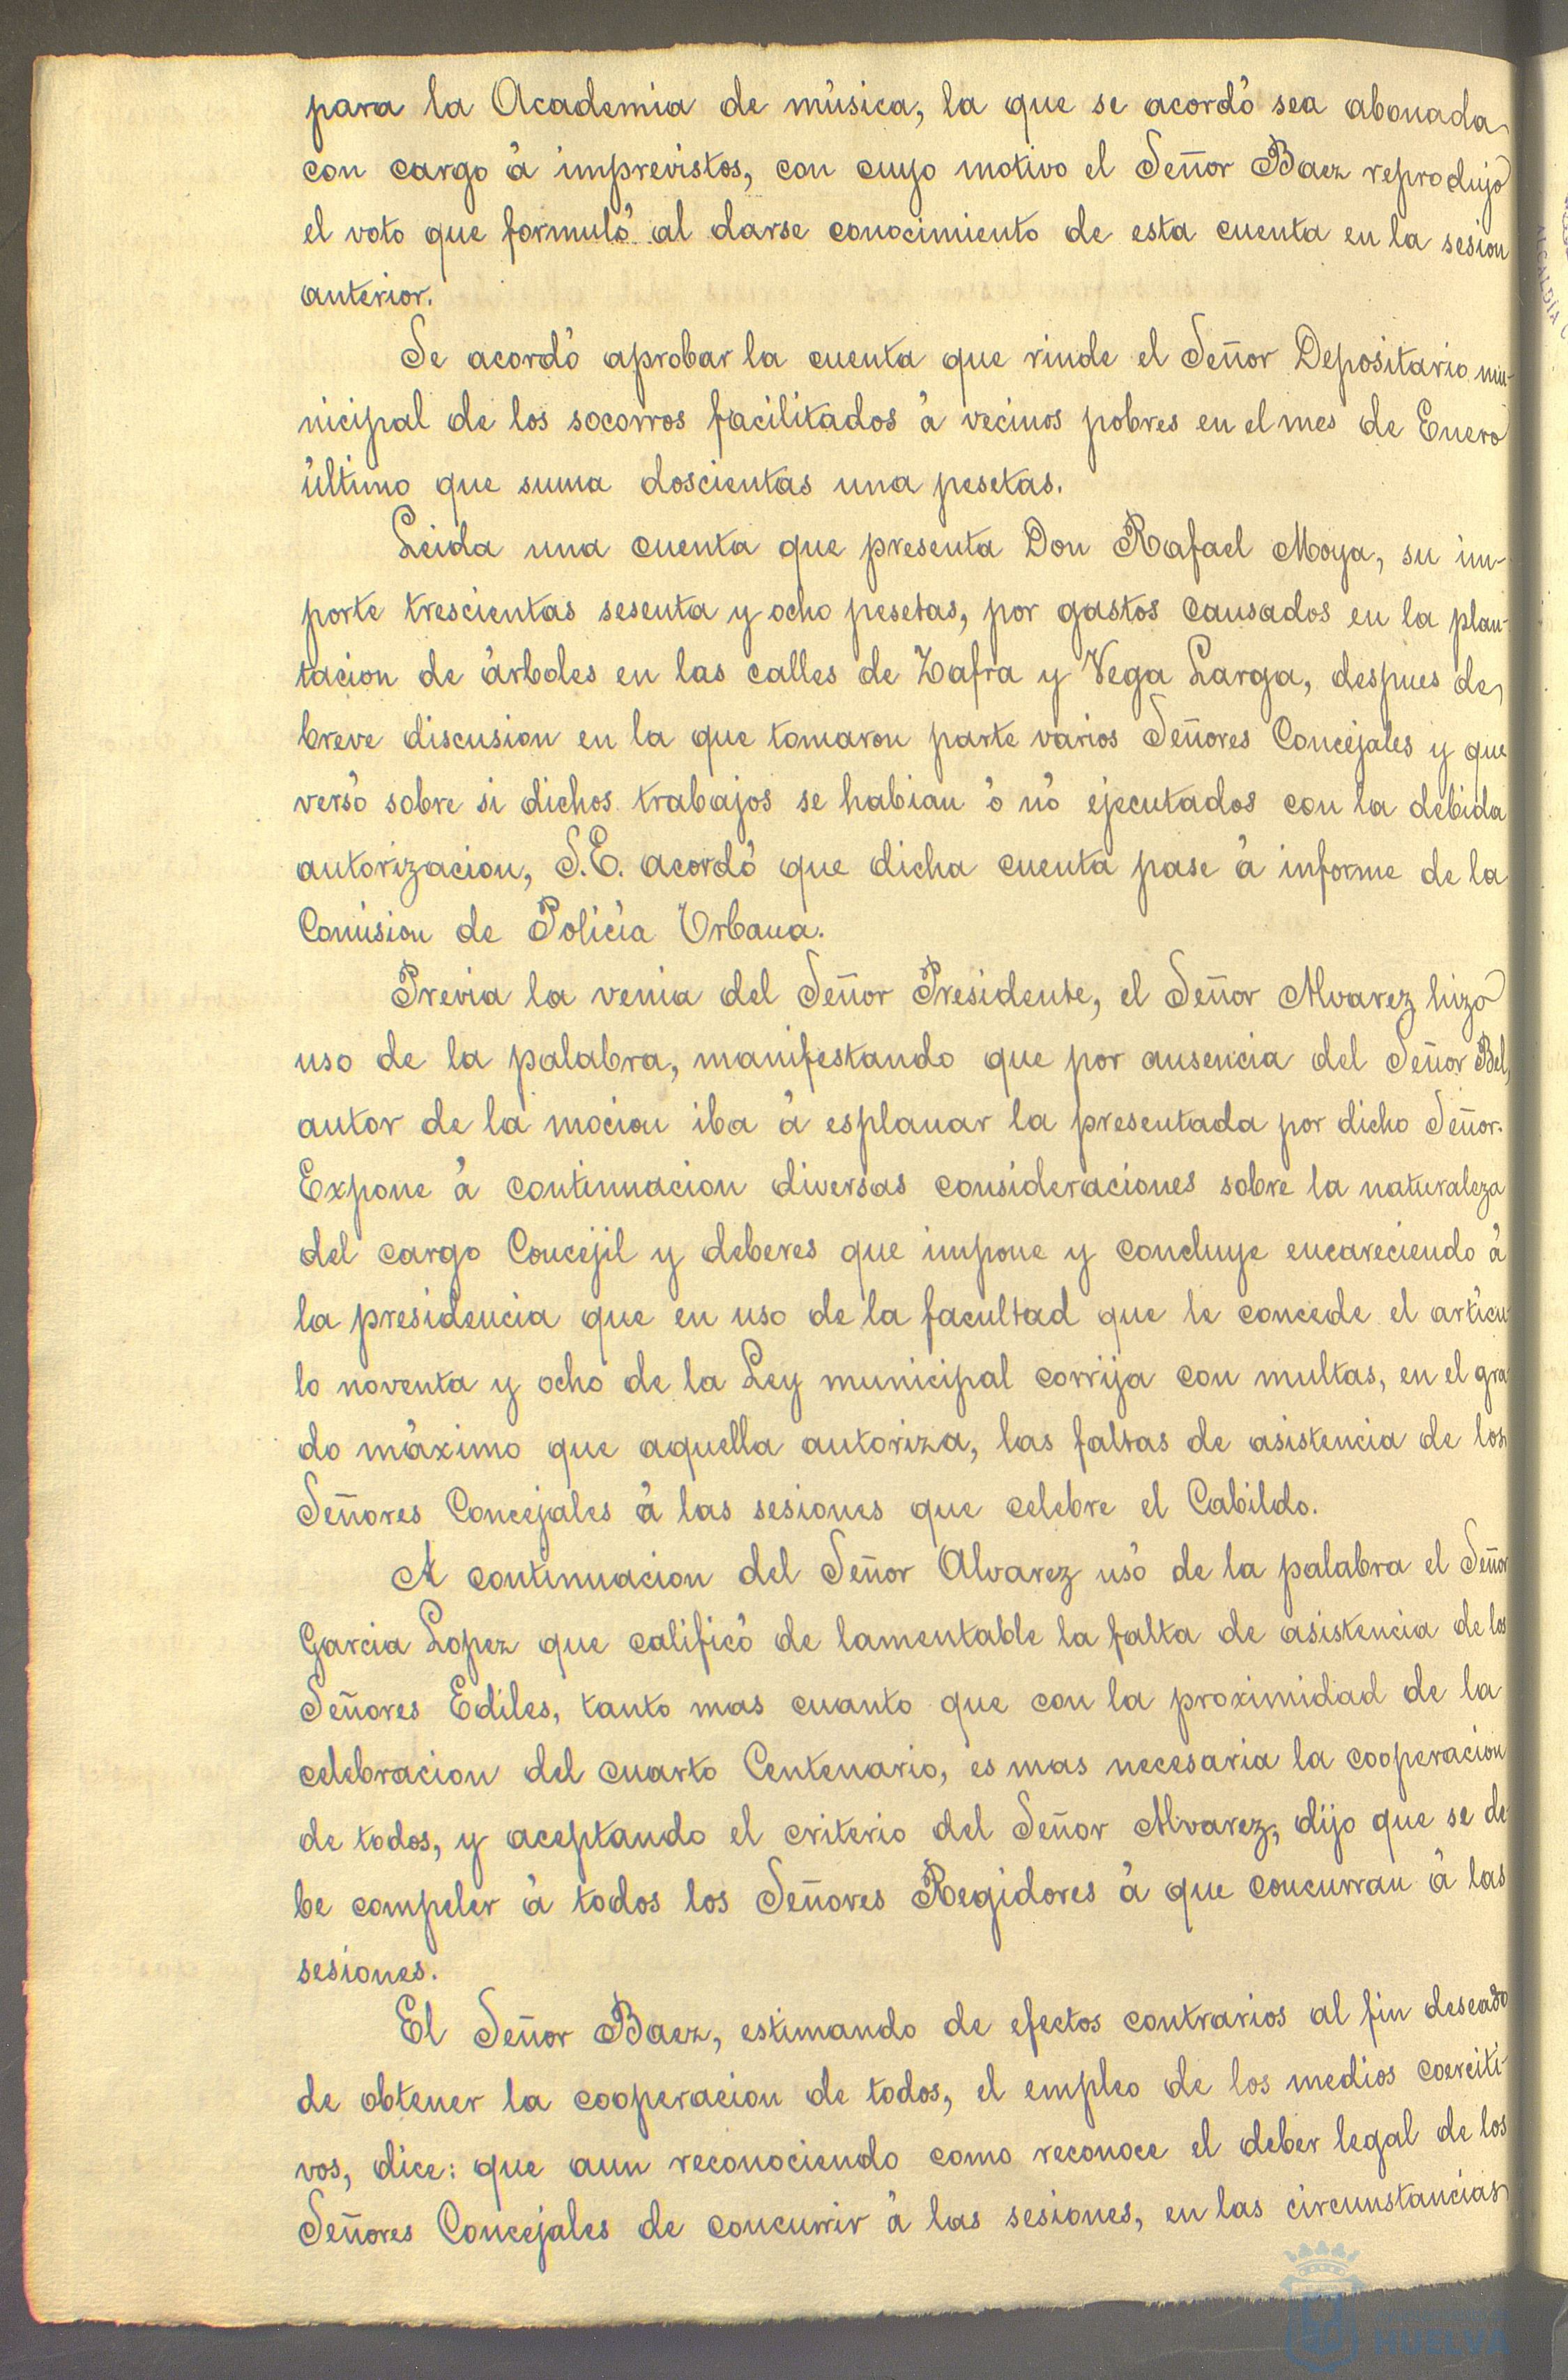 para la Academia de música, la que se acordó sea abonada
con cargo á imprevistos, con cuyo motivo el Señor Baez reprodujo
el voto que formuló al darse conocimiento de esta cuenta en la sesion
anterior.
Se acordó aprobar la cuenta que rinde el Señor Depositario mu-
nicipal de los socorros facilitados á vecinos pobres en el mes de Enero
último que suma doscientas una pesetas.
Leida una cuenta que presenta Don Rafael Moya, su im-
porte trescientas sesenta y ocho pesetas, por gastos causados en la plan-
tacion de árboles en las calles de Zafra y Vega Larga, despues de
breve discusion en la que tomaron parte varios Señores Concejales y que
versó sobre si dichos trabajos se habian ó nó ejecutados con la debida
autorizacion, S.E. acordó que dicha cuenta pase á informe de la
Comision de Policía Urbana.
Previa la venia del Señor Presidente, el Señor Alvarez hizo
uso de la palabra, manifestando que por ausencia del Señor Bel,
autor de la mocion iba á esplanar la presentada por dicho Señor.
Expone á continuacion diversas consideraciones sobre la naturaleza
del cargo Concejil y deberes que impone y concluye encareciendo á
la presidencia que en uso de la facultad que le concede el artícu
lo noventa y ocho de la Ley municipal corrija con multas, en el gra
do máximo que aquella autoriza, las faltas de asistencia de los
Señores Concejales á las sesiones que celebre el Cabildo.
A continuacion del Señor Alvarez usó de la palabra el Señor
Garcia Lopez que calificó de lamentable la falta de asistencia de los
Señores Ediles, tanto mas cuanto que con la proximidad de la
celebracion del cuarto Centenario, es mas necesaria la cooperacion
de todos, y aceptando el criterio del Señor Alvarez, dijo que se de
be compeler á todos los Señores Regidores á que concurran á las
sesiones.
El Señor Baez, estimando de efectos contrarios al fin deseado
de obtener la cooperacion de todos, el empleo de los medios coerciti-
vos, dice: que aun reconociendo como reconoce el deber legal de los
Señores Concejales de concurrir á las sesiones, en las circunstancias
HUELVA
ALCALDÍA